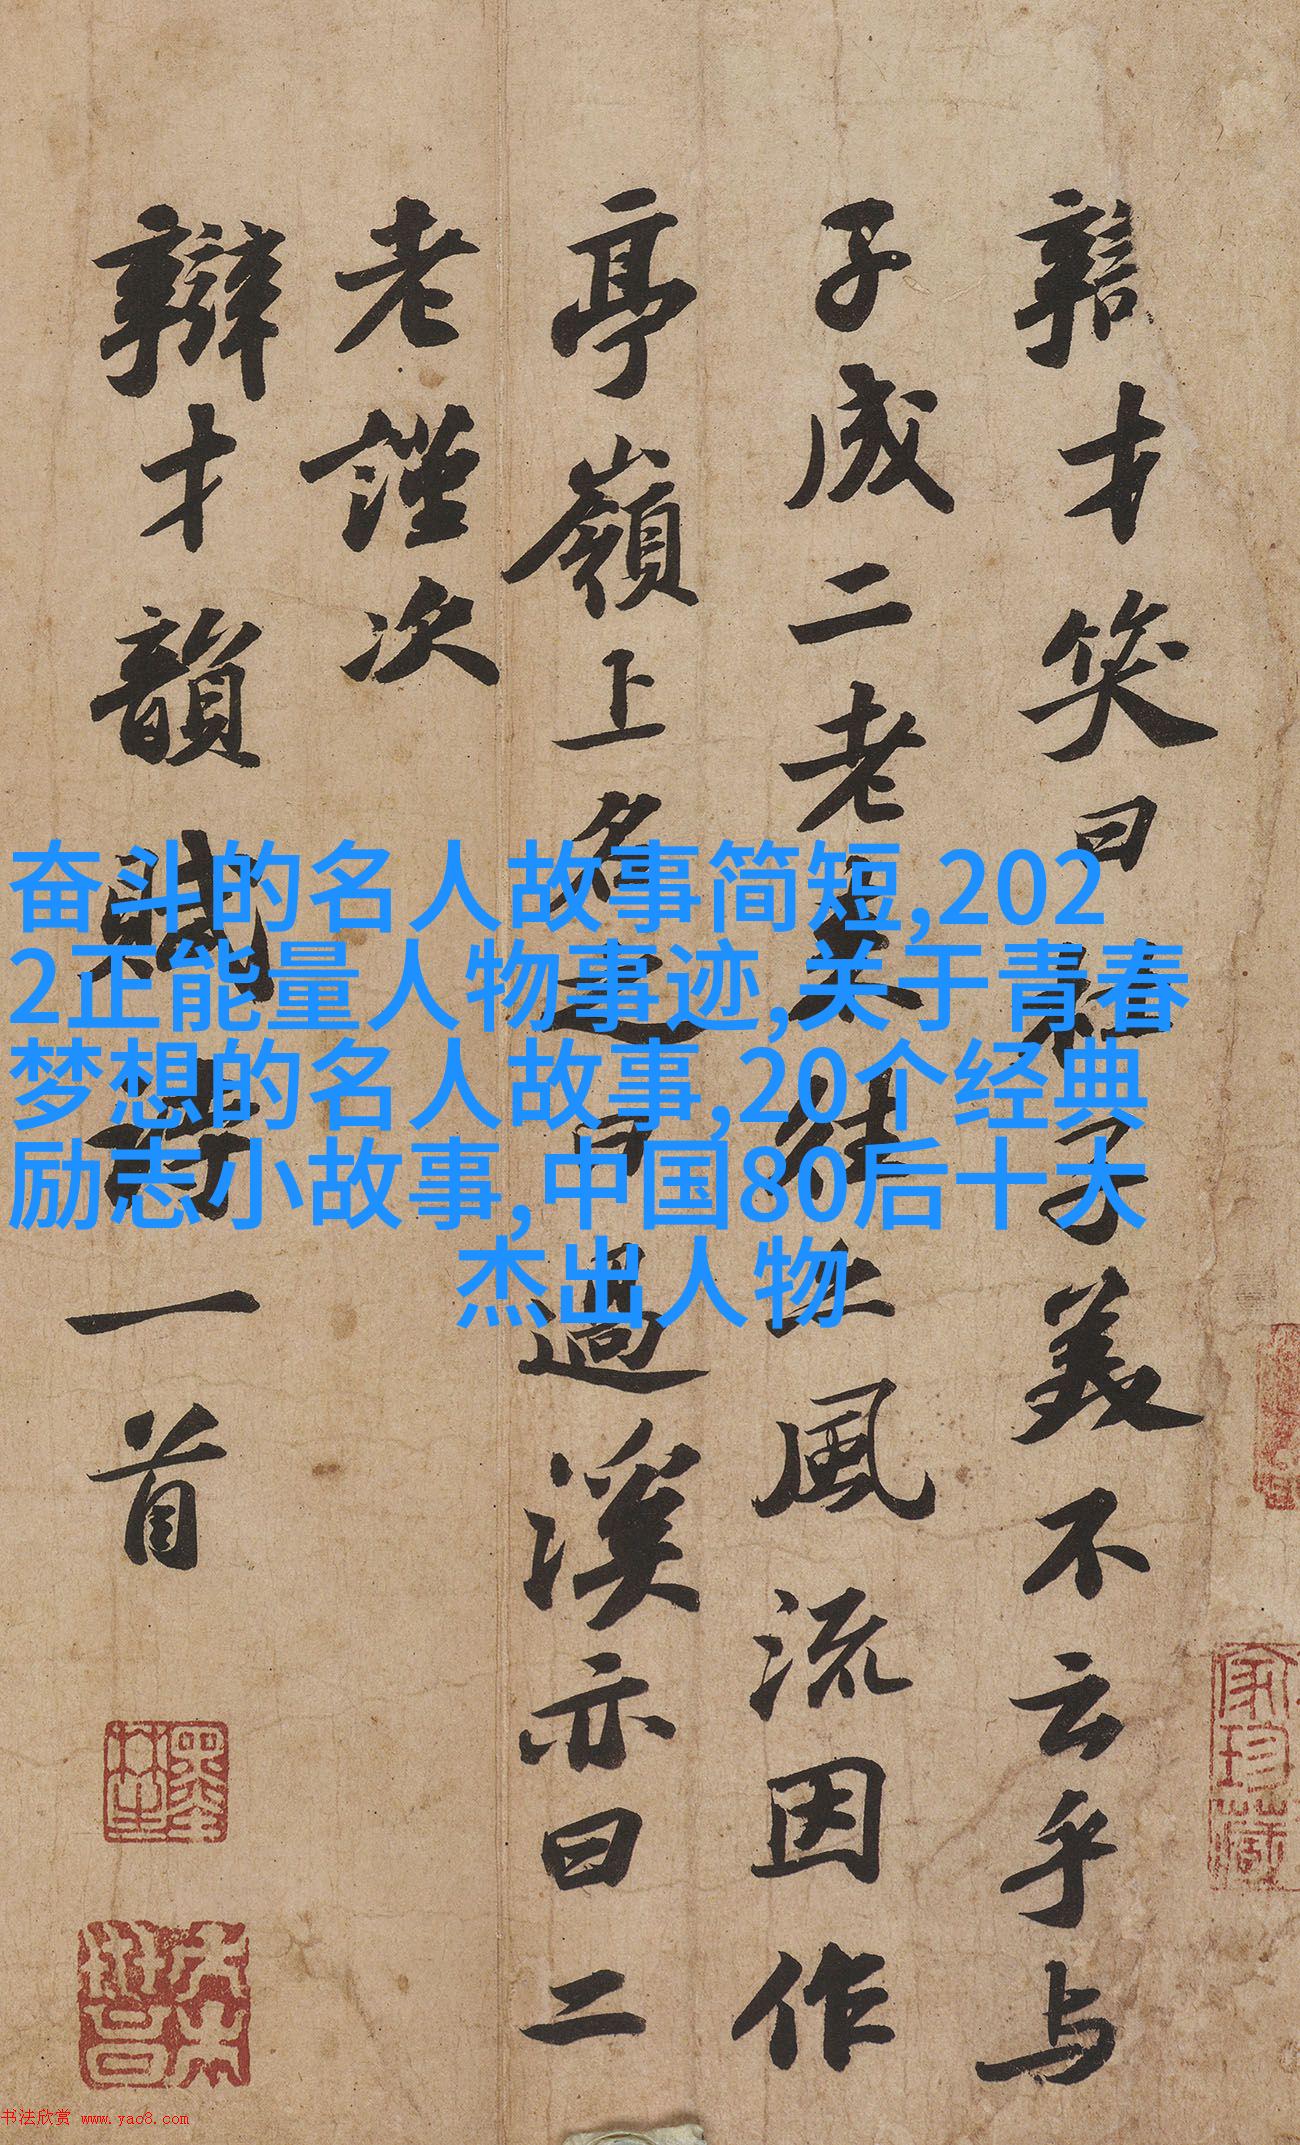 辯才笑曰杜子美不云乎与
子成二老来往亦風流因作
亭嶺上名之曰過溪亦曰二
老謹次
辯才韻賦詩一首
奋斗的名人故事简短,202
2正能量人物事迹,关于青春
梦想的名人故事,20个经典
励志小故事,中国80后十大
杰出人物
家珍藏
书法欣赏 www.yac8.com